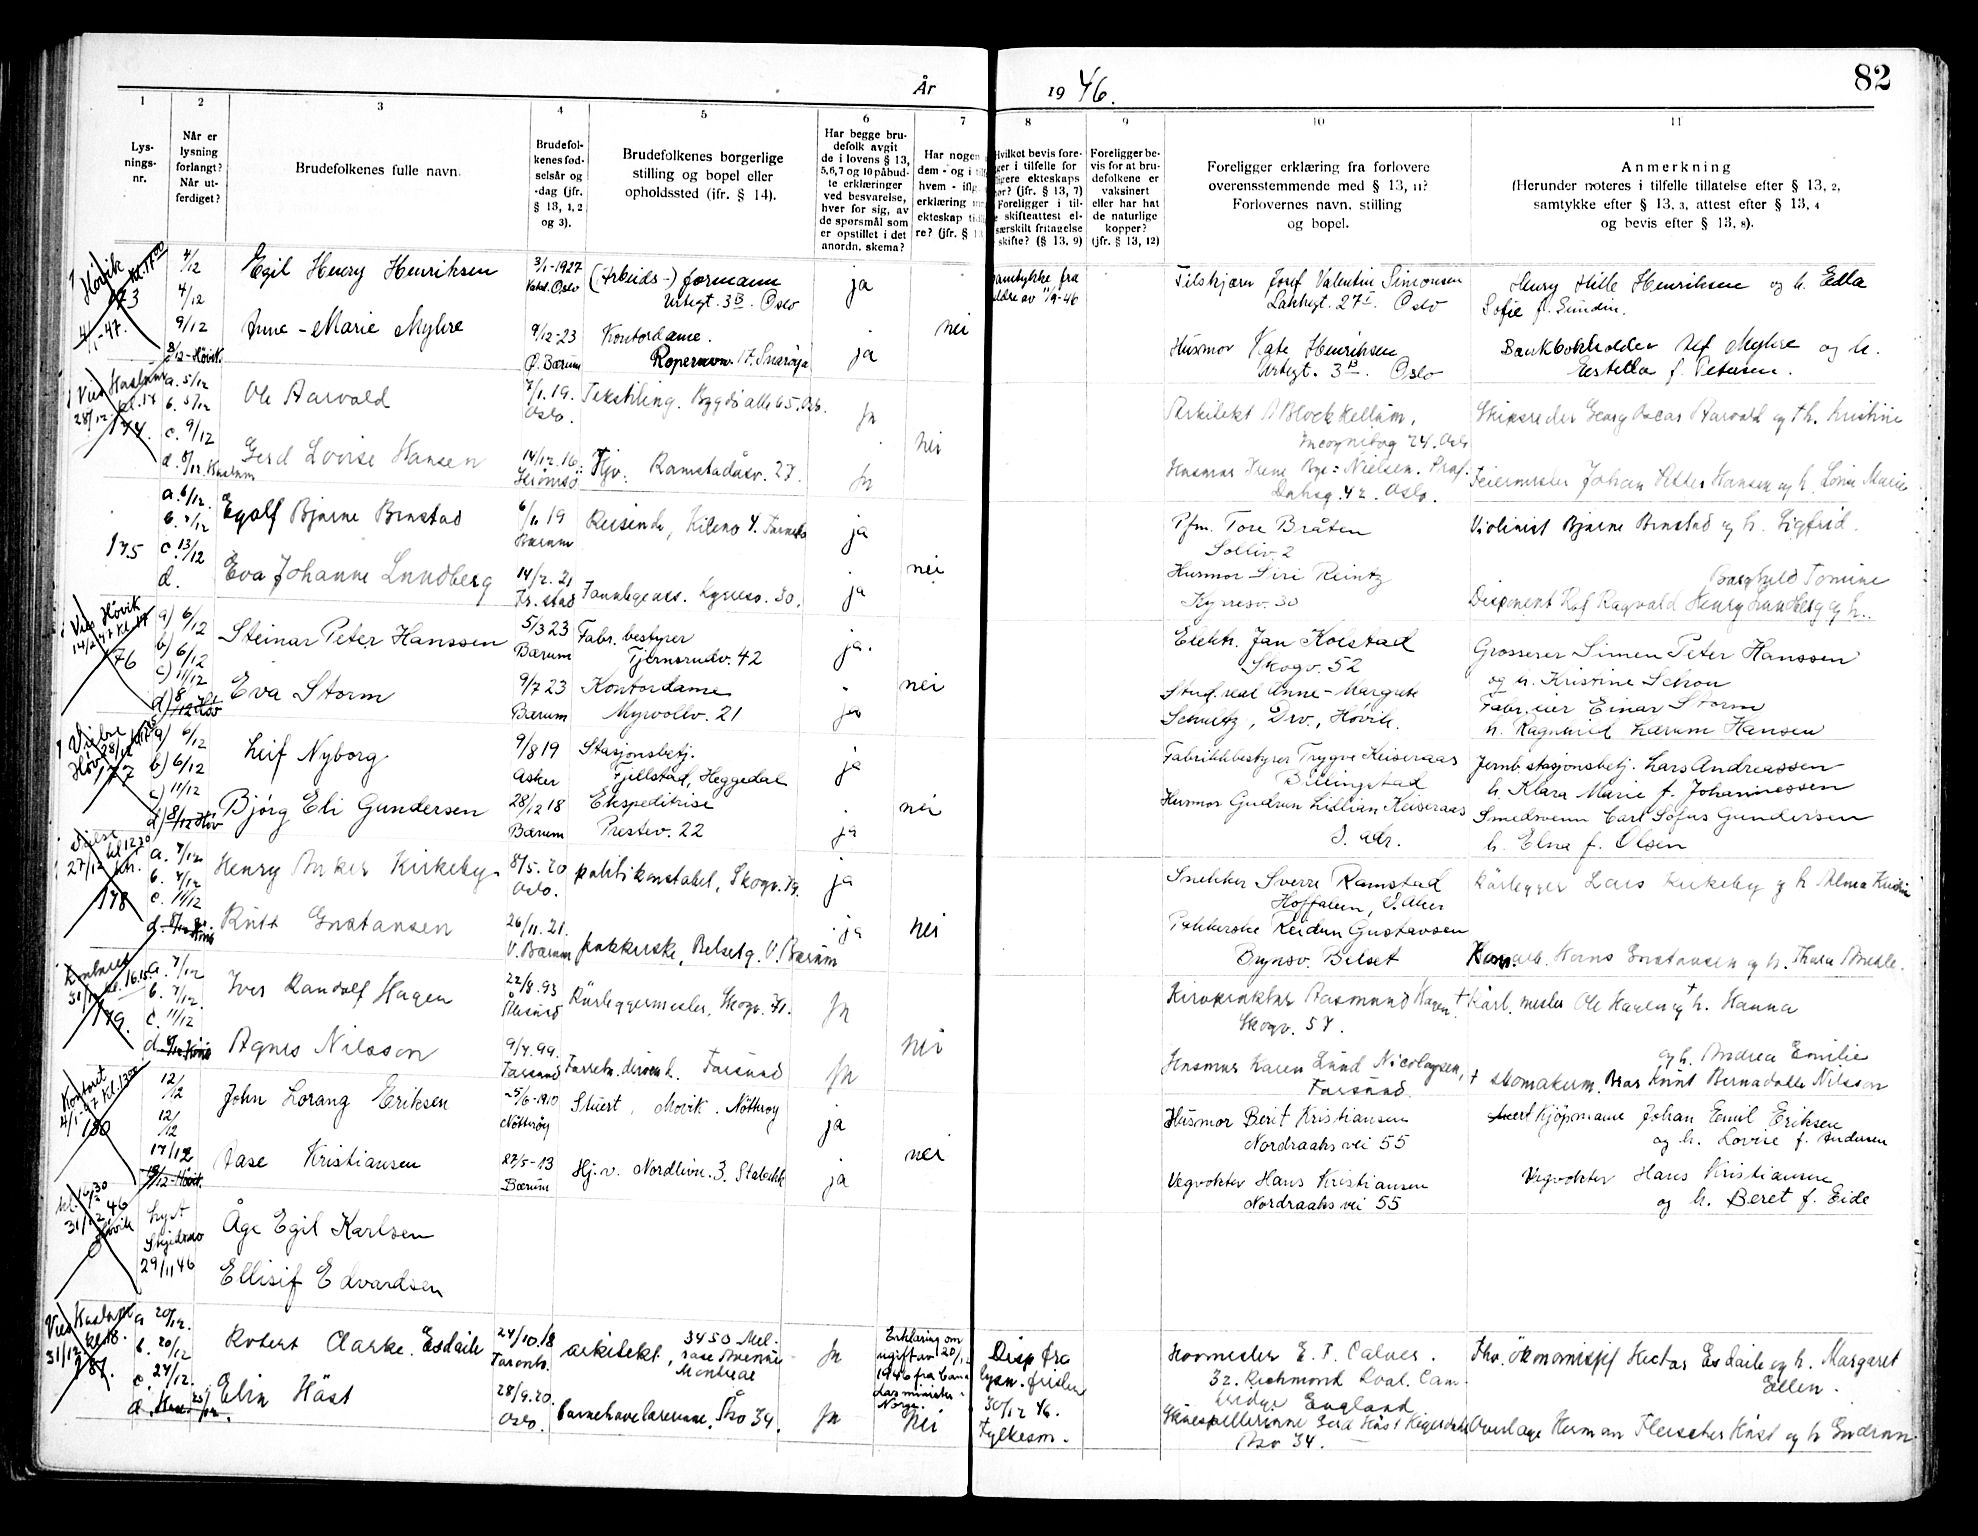 82
År 1946.
1 2 3 4 5 6 7 8 9 10 11
Lys-
nings-
nr.
Når er
lysning
forlangt?
Når ut-
ferdiget?
Brudefolkenes fulle navn.
Brudefol-
kenes fød-
selsår og
-dag (jfr.
§ 13, 1, 2
og 3).
Brudefolkenes borgerlige
stilling og bopel eller
opholdssted (jfr. § 14).
Har begge bru-
defolk avgit
de i lovens § 13,
5,6,7 og 10 påbud-
te erklæringer
ved besvarelse,
hver for sig, av
de spørsmål som
er opstillet i det
anordn. skema?
Har nogen
dem - og i
hvem -
erklæring
ekteskap
re? (jfr. §
Hvilket bevis fore-
ger i tilfelle for
ligere ekteskaps
hør? (jfr. § 13, 7)
Foreligger i til-
e skifteattest el-
særskilt fritagelse
skifte? (§ 13, 9)
Foreligger be-
vis for at bru-
defolkene er
vaksinert
eller har hat
de naturlige
kopper?
(jfr. § 13, 12)
Foreligger erklæring fra forlovere
overensstemmende med § 13, 11?
Forlovernes navn, stilling
og bopel.
Anmerkning
(Herunder noteres i tilfelle tillatelse efter § 13, 2,
samtykke efter § 13, 3, attest efter § 13, 4
og bevis efter § 13, 8).
Høvik kl. 17.00
173
4/1-47.
4/12
4/12
9/12
8/12-Høvik
Egil Henry Henriksen
3/1-1927
Oslo
(Arbeids-) formann
Urtegt. 3B. Oslo
ja
samtykke fra
Filskjærer Josef Valentin Simonsen
Lakkegt. 27 I Oslo
Henry Hille Henriksen og h. Edla
Sofie f. Sundin.
Anne-Marie Myhre
9/12-23
Ø. Bærum
Kontordame.
17. Snarøya
ja
nei
Husmor Kate Henriksen
Urtegt. 3B. Oslo
Bankbokholder Alf Myhre og h.
Estella f. Petersen.
Vied Haslum
28/12. kl. 14
174.
a. 5/12
b. 5/12
c. 9/12
d. 8/12. Haslum
Ole Aarvold
7/1. 19.
Oslo.
Tekstiling. Bygdø alle 65. Oslo.
ja
Arkitekt A Block Kellum,
Incognitog 24. Oslo
Skipsreder Georg Oscar Aarvold og † h. Kristine
Gerd Lovise Hansen
14/12. 16.
Hjv. Ramstadåsv. 27.
ja
nei
Husmor Irene Bye-Nielsen. Prof.
Dahsg. 42. Oslo.
Feiermester Johan Petter Hansen og h. Lovise Marie
175
a. 6/12.
b. 7/12
c. 13/12
d.
Egolf Bjarne Brustad
6/11 19
Bærum
Reisende, Kilenv 4. Fornebo
ja
Pfm. Tore Bråten
Solliv. 2
Violinist Bjarne Brustad og h. Sigfrid.
Eva Johanne Lundberg
14/2. 21
Fr. stad
Tannlegeass. Kyrresv. 30.
ja
nei
Husmor Siri Reintz
Kyrresv. 30
Borghild Tomine
Disponent Rolf Ragvald Henry Lundberg og h.
Vied Høvik
14/2 47 kl. 17
176
a) 6/12
b) 6/12
c) 11/12
d) 8/12 Høv
Steinar Peter Hanssen
5/3 23
Bærum
Fabr. bestyrer
Tjernsrudv. 42
ja.
Elektr. Jan Kolstad
Skogv. 52
Grosserer Simen Peter Hanssen
og h. Kristine Schou
Eva Storm
9/7 23
Bærum
Kontordame
Myrvollv. 21
ja
nei
Stud. real Anne-Margrete
Schultz, Drv., Høvik.
Fabr. eier Einar Storm
h. Ragnhild Lærum Hansen
Vielse
Høv. 28/12
177
a) 6/12
b) 6/12
c) 11/12
d) 8/12 Høv
Leif Nyborg
9/8 19
Asker
Stasjonsbetj.
Fjellstad, Heggedal
ja
Fabrikkbestyrer Trygve Keiseraas
Billingstad
Jernb. stasjonsbetj. Lars Andreassen
h. Klara Marie f. Johannessen
Bjørg Eli Gundersen
28/12 18
Bærum
Ekspeditrise
Prestev. 22
ja
nei
Husmor Gudrun Lillian Keiseraas
S. adr.
Smedsvenn Carl Sofus Gundersen
h. Elna f. Olsen
Vielse
27/12 kl 12.30
178
a. 7/12
b. 7/12
c. 11/12
d. 8/12 Høvik
Henry Anker Kirkeby
8/5. 20
Oslo.
politikonstabel, Skogv.
ja
Snekker Sverre Ramstad
Hoffalleen, V. Aker
Rørlegger Lars Kirkeby og h Alma Kristine
Ruth Gustavsen
26/11. 21.
V. Bærum
pakkerske, Belsetg. V. Bærum
ja
nei
Pakkerske Reidun Gustavsen
Brynsv. Belset
Hans Gustavsen og h. Thora Amalie.
Kontoret
31/12 kl. 16.15
179.
a. 7/12
b. 7/12.
c. 11/12
d. 8/12 Høvik
Iver Randolf Hagen
22/8. 93
Ålesund
Rørleggermester, Skogv. 71.
ja
Kiropraktor Aasmund Hagen.
Skogv. 57.
† Rørl. mester Ole Hagen og † h. Hanna
Agnes Nilsson
9/4. 99.
Farsund
Farsund
ja
nei
Husmor Karen Lund Nicolaysen,
Farsund.
og h. Andrea Emilie
† skomakerm. Knut Bernadotte Nilsson
Kontoret
4/1-47 Kl. 13.00
180
12/12
12/12
17/12
12/12-Høvik.
John Lorang Eriksen
5/6-1910
Nøtterøy
Stuert, Movik. Nøtterøy
ja
Husmor Berit Kristiansen
Nordraaks vei 55
Kjøpmann Johan Emil Eriksen
og h. Lovise f. Andersen
Aase Kristiansen
27/5-13
Bærum
Hj. v. Nordliv. 3. Stabekk
ja
nei
Vegvokter Hans Kristiansen
Nordraaks vei 55
Vegvokter Hans Kristiansen
og h. Beret f. Eide
kl. 16.30
31/12 46
Høvik
Lyst
29/11 46
Åge Egil Karlsen
Ellisif Edvardsen
Vied Haslum
31/12. kl. 18.
181.
a 20/12.
b. 20/12
c. 24/12.
d.
Robert Clarke Esdaile
24/10. 18
Toronto.
arkitekt, 3450 Mel-
rose Avenue
Montreal
ja
Erklæring om
ugift av 20/12
1946 fra Cana-
das minister i
Norge.
Disp fra
lysn. fristen
30/12 46.
Fylkesm.
Hovmester E. T. Calver.
32. Richmond Road. Cam-
bridge England
Fhv. økonomisjef Hector Esdaile og h. Margaret
Ellen.
Elin Høst
28/9. 20.
Oslo.
barnehavelærerinne, Åsv 34.
ja
nei
Skuespillerinne Gerd Høst
Åsv 34.
Overlæge Herman Fleischer Høst og h Gudrun.